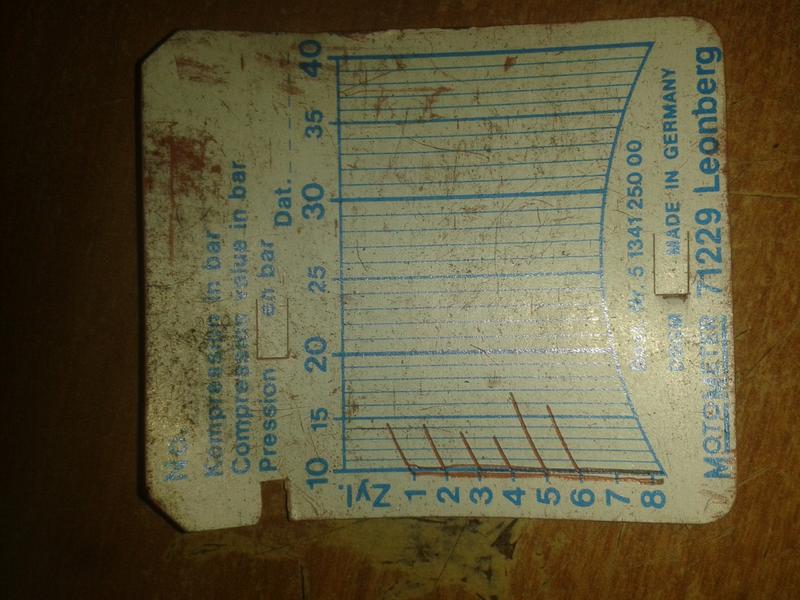 No.
Kompression in bar
Compression value in bar
Pression en bar
Dat.
40
35
30
25
20
15
10
Zyl.
1
2
3
4
5
6
7
8
Best. Nr. 5 1341 250 00
MADE IN GERMANY
MOTOMETER 71229 Leonberg